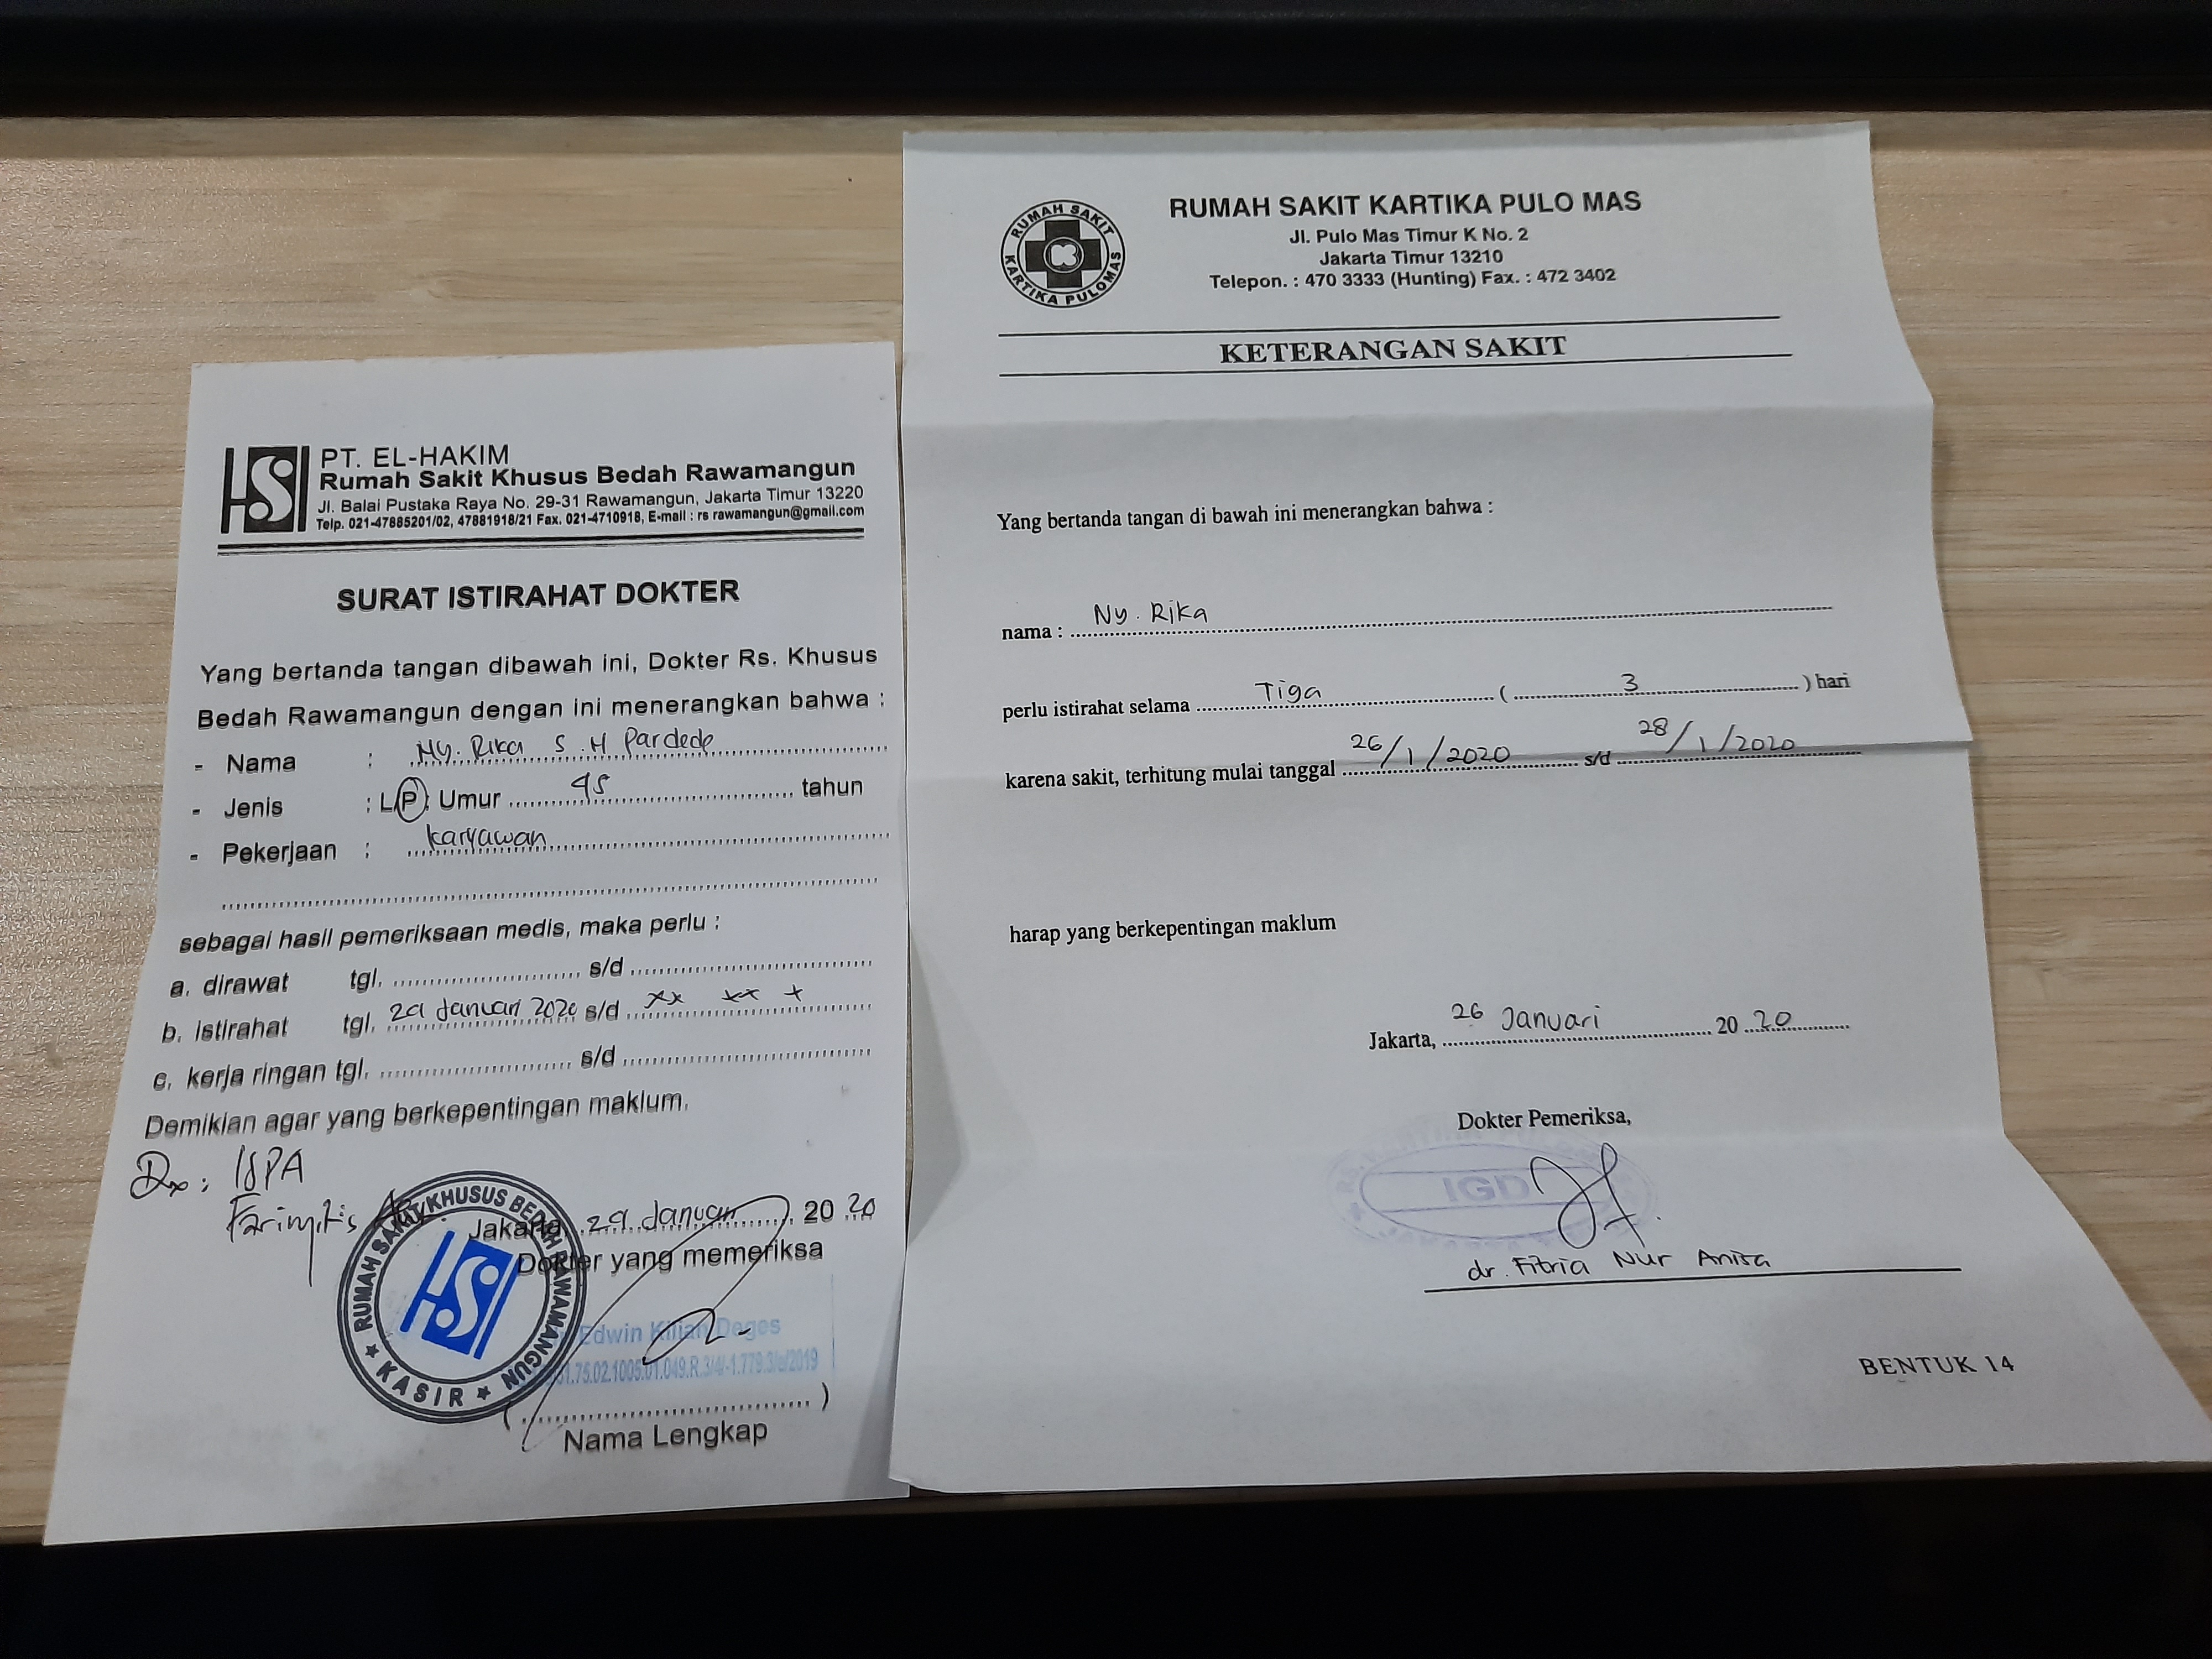 PT. EL-HAKIM
Rumah Sakit Khusus Bedah Rawamangun
Jl. Balai Pustaka Raya No. 29-31 Rawamangun, Jakarta Timur 13220
Telp. 021-47885201/02, 47881918/21 Fax. 021-4710918, E-mail : rs rawamangun@gmail.com
SURAT ISTIRAHAT DOKTER
Yang bertanda tangan dibawah ini, Dokter Rs. Khusus
Bedah Rawamangun dengan ini menerangkan bahwa :
- Nama : Ny. Rika S. H Pardede
- Jenis : L/P : Umur 45 tahun
- Pekerjaan : Karyawan
sebagai hasil pemeriksaan medis, maka perlu :
a. dirawat tgl. s/d
b. istirahat tgl. 29 Januari 2020 s/d xx xx x
c. kerja ringan tgl. s/d
Demikian agar yang berkepentingan maklum.
Dx : ISPA
Jakarta, 29 Januari 20 20
Dokter yang memeriksa
RUMAH SAKIT KHUSUS BEDAH RAWAMANGUN
KASIR
Edwin Kilian Deges
(  )
Nama Lengkap
RUMAH SAKIT
KARTIKA PULOMAS
RUMAH SAKIT KARTIKA PULO MAS
Jl. Pulo Mas Timur K No. 2
Jakarta Timur 13210
Telepon. : 470 3333 (Hunting) Fax. : 472 3402
KETERANGAN SAKIT
Yang bertanda tangan di bawah ini menerangkan bahwa :
nama : Ny. Rika
perlu istirahat selama Tiga ( 3 ) hari
karena sakit, terhitung mulai tanggal 26/1/2020 s/d 28/1/2020
harap yang berkepentingan maklum
Jakarta, 26 Januari 20 20
Dokter Pemeriksa,
IGD
dr. Fitria Nur Anisa
BENTUK 14